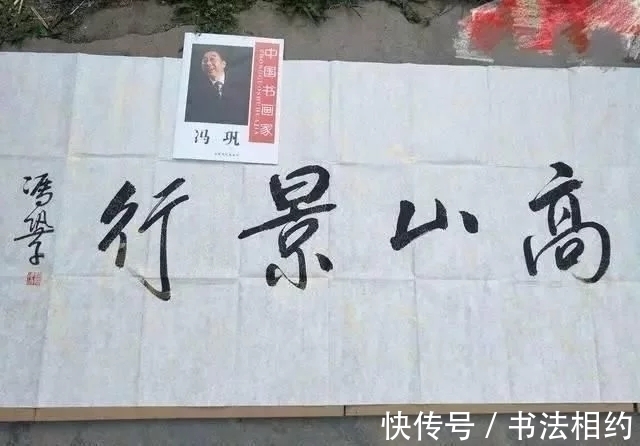 中国书画家
ZHONGGUOSHUHUAJIA
冯 巩
高山景行
馮鞏
快传号 / 书法相约